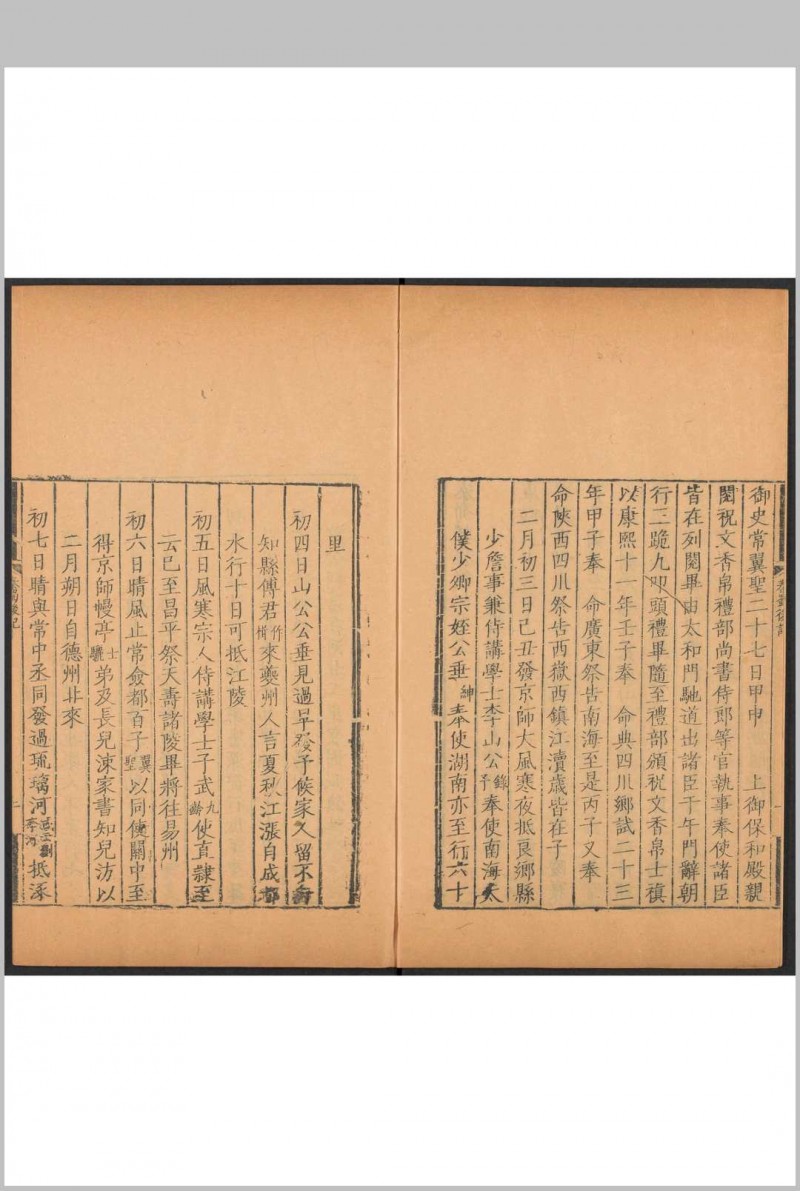 御史常翼聖二十七日甲申　　上御保和殿親
閱祝文香帛禮部尚書侍郎等官執事奉使諸臣
皆在列閱畢由太和門馳道出諸臣于午門辭朝
行三跪九叩頭禮畢隨至禮部頒祝文香帛士禛
以康熙十一年壬子奉　命典四川鄉試二十三
年甲子奉　命廣東祭告南海至是丙子又奉
命陝西四川祭告西嶽西鎮江瀆歲皆在子
二月初三日己丑發京師大風寒夜抵良鄉縣
少詹事兼侍講學士李山公錄予奉使南海太
僕少卿宗姪公垂紳奉使湖南亦至行六十
里
初四日山公公垂見過早發予候家人留不肯
知縣傅君作楫來夔州人言夏秋江漲自成都
水行十日可抵江陵
初五日風寒宗人侍講學士子武九齡使直隸至
云已至昌平祭天壽諸陵畢將往易州
初六日晴風止常僉都百子翼聖以同使關中至
得京師幔亭士驪弟及長兒涑家書知兒汸以
二月朔日自德州北來
初七日晴與常中丞同發過琉璃河抵涿